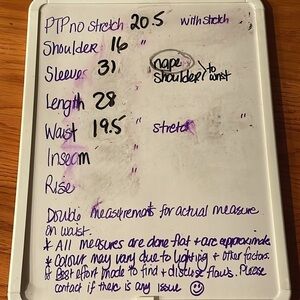 PTP no stretch 20.5 " with stretch
Shoulder 16 "
Sleeves 31 " nape shoulder > to wrist
Length 28 "
Waist 19.5 " stretch "
Inseam "
Rise "
Double measurements for actual measure
on waist.
* All measures are done flat + are approximate
* Colour may vary due to lighting + other factors.
* Best effort made to find + disclose flaws. Please
contact if there is any issue ☺